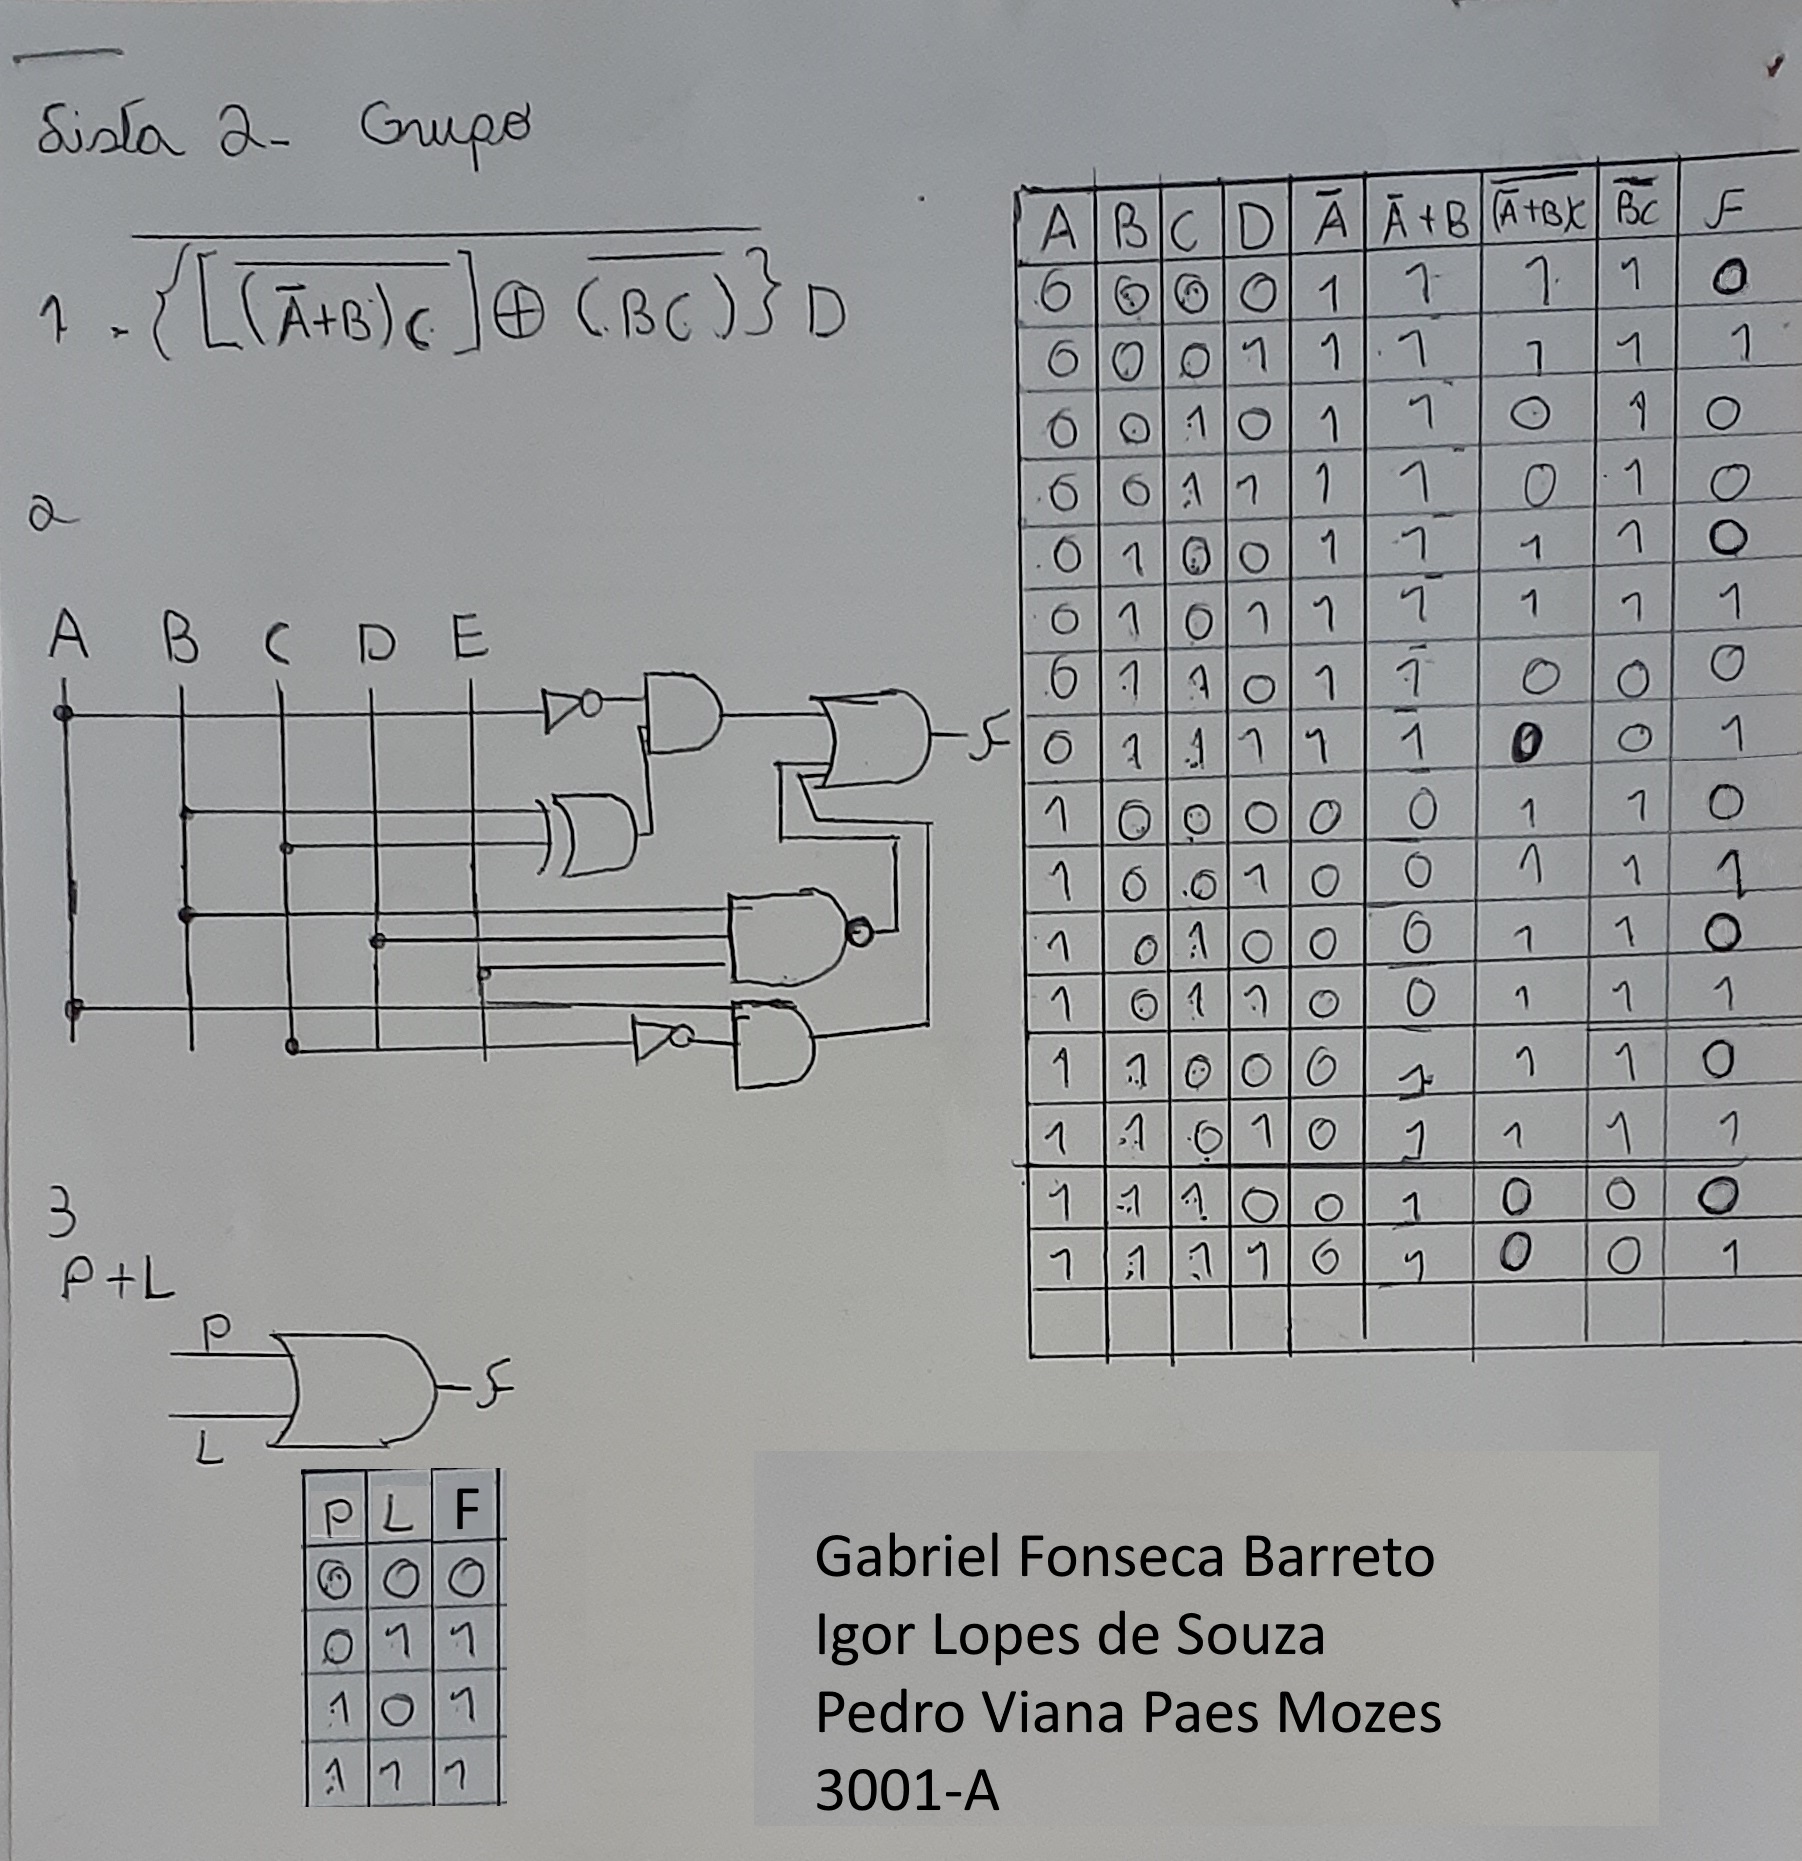 Lista 2- Grupo
1. \overline{{[\overline{(Ā+B)C}]⊕(\overline{BC})}}D
A B C D Ā Ā+B \overline{(Ā+B)C} \overline{BC} F
0 0 0 0 1 1 1 1 0
0 0 0 1 1 1 1 1 1
0 0 1 0 1 1 0 1 0
0 0 1 1 1 1 0 1 0
0 1 0 0 1 1 1 1 0
0 1 0 1 1 1 1 1 1
0 1 1 0 1 1 0 0 0
0 1 1 1 1 1 0 0 1
1 0 0 0 0 0 1 1 0
1 0 0 1 0 0 1 1 1
1 0 1 0 0 0 1 1 0
1 0 1 1 0 0 1 1 1
1 1 0 0 0 1 1 1 0
1 1 0 1 0 1 1 1 1
1 1 1 0 0 1 0 0 0
1 1 1 1 0 1 0 0 1
2
A B C D E
F
3
P+L
P
F
L
P L F
0 0 0
0 1 1
1 0 1
1 1 1
Gabriel Fonseca Barreto
Igor Lopes de Souza
Pedro Viana Paes Mozes
3001-A